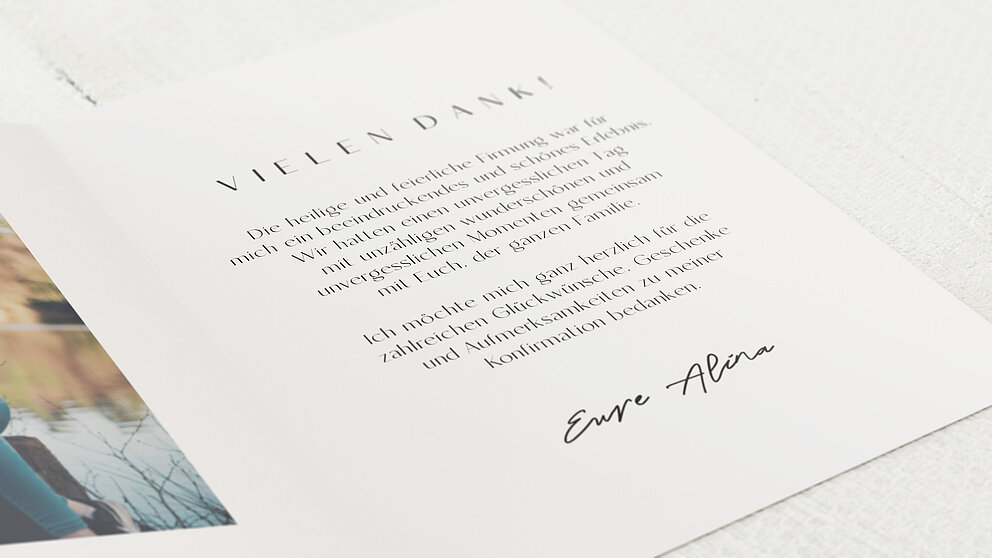 VIELEN DANK!
Die heilige und feierliche Firmung war für
mich ein beeindruckendes und schönes Erlebnis.
Wir hatten einen unvergesslichen Tag
mit unzähligen wunderschönen und
unvergesslichen Momenten gemeinsam
mit Euch, der ganzen Familie.
Ich möchte mich ganz herzlich für die
zahlreichen Glückwünsche, Geschenke
und Aufmerksamkeiten zu meiner
Konfirmation bedanken.
Eure Alina